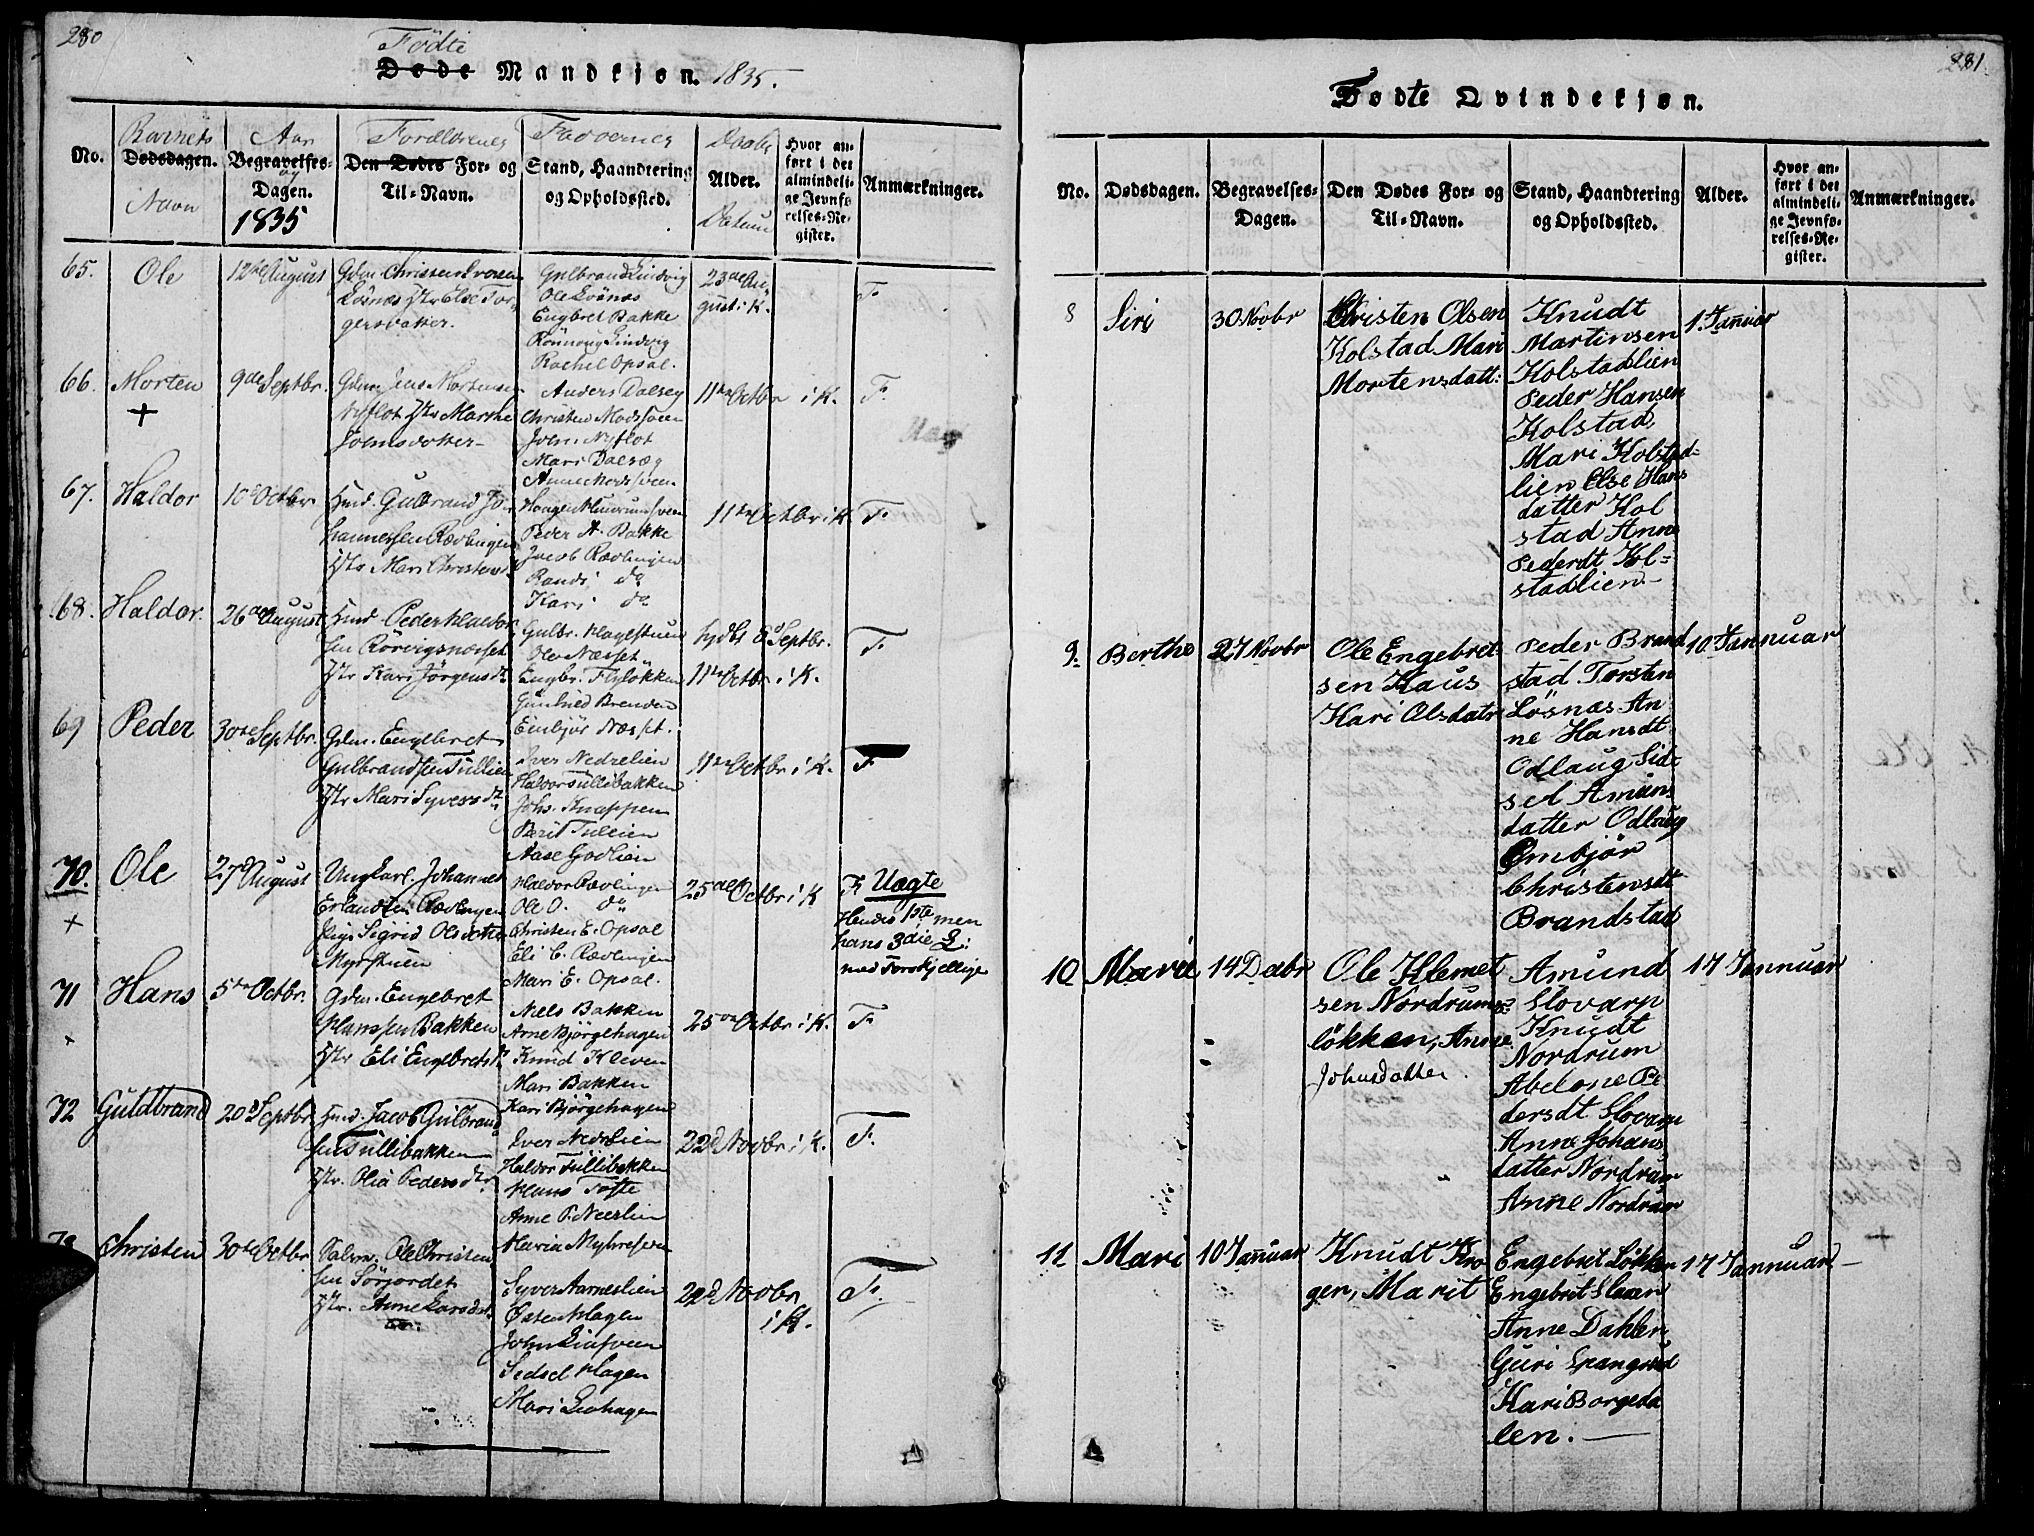 280
Födte
Døde Mandkjøn. 1835.
Barnets
Navn
Aar
og
1835
Forældrenes
Faddernes
Daabs
Datum
No.
Dødsdagen.
Begravelses-
Dagen.
Den Dødes For- og
Til-Navn.
Stand, Haandtering
og Opholdssted.
Alder.
Hvor an-
ført i det
almindeli-
ge Jevnfø-
relses-Re-
gister.
Anmærkninger.
65.
Ole
12te August
Gdm. Christen Iversen
Lösnæs Hstr Else Tor-
gersdatter.
Gulbrand Lindvig
Ole Lösnæs
Engbret Bakke
Rönnoug Lindvig
Rachel Opsal.
23de Au-
gust i K.
F.
66.
Morten
+
9de Septbr.
Gdm. Jens Mortensen
Nyflot Hstr Marthe
Johnsdatter-
Anders Dalseg
Christen Modsveen
John Nyflot
Mari Dalseg
Anne Modsveen
11te Octbr i K.
F.
67.
Haldor
10de Octbr.
Hmd. Gulbrand Jo-
hannessen Rævlingen
Hstr Mari Christensd.
Peder A. Bakke
Jacob Rævlingen
Randi do
Kari do
11te Octbr i K
F.
68.
Haldor.
26de August
Hmd. Peder Haldor-
sen Rörvignæsset
Hstr Kari Jörgensdr
Gulbr. Hagestuen
Ole Næsset
Engbr. Flyløkken
Gunhild Brenden
Embjör Næsset.
hjdbt 6 Septbr.
11te Octbr. i K.
F.
69
Peder
30te Septbr.
Gdm. Engebret
Gulbrandsen Tullien
Hstr Mari Syversdr
Iver Nedrelien
Haldor Tullibakken
Johs. Knappen
Berit Tullien
Aase Godlien
11te Octbr i K.
F
70.
+
Ole
27d August
Ungkarl. Johannes
Erlandsen Rævlingen
Pige Sigrid Olsdatter
Myrstuen
Haldor Rævlingen
Ole O. do
Christen E. Opsal
Eli C. Rævlingen
Mari E. Opsal.
25de Octbr i K
F. Uægte
Hendes 1ste men
hans 3die L:
med Forskjellige
71
+
Hans
5te Octbr.
Gdm. Engebret
Hanssen Bakken
Hstr Eli Engebretsdr
Niels Bakken
Arne Bjørgehagen
Knud Kleven
Mari Bakken
Kari Bjørgehagen
25de Octbr i K.
F.
72
Guldbrand
20d Septbr
Hmd. Jacob Gulbrand-
sen Tullibakken
Hstr. Olia Pedersdr
Iver Nedrelien
Haldor Tullibakken
Hans Tofte
Anne P. Neerlien
Maria Myhreseen
22d Novbr i K.
F.
Christen
30te Octbr.
Salsm. Ole Christen-
sen Sørjordet
Hstr. Anne Larsdat.
Syver Aarneslien
Østen Hagen
John Liasveen
Sedsel Hagen
Mari Liehagen
22d Novbr
i K.
F.
281
Fødte Qvindekjøn.
No.
Dødsdagen.
Begravelses-
Dagen.
Den Dødes For- og
Til-Navn.
Stand, Haandtering
og Opholdssted.
Alder.
Hvor an-
ført i det
almindeli-
ge Jevnfø-
relses-Re-
gister.
Anmærkninger.
8
Siri
30 Novbr
Christen Olsen
Kolstad Mari
Mortensdatt:
Knudt
Martinsen
Kolstadlien
Peder Hansen
Kolstad,
Mari Kolstad-
lien Else Hans
datter Kol
stad Anne
Pederdt Kol-
stadlien-
1 Januar
9.
Berthe
27 Novbr
Ole Engebret
sen Haus
Kari Olsdatr
Peder Brand
stad Torsten
Løsnæs An
ne Hansdt
Odlaug Sid-
sel Amuns
datter Odlaug
Embjør
Christensdt
Brandstad
10 Januar
10
Marie
14 Decbr
Ole Klemet
sen Nordrums-
løkken, Anne
Johnsdatter.
Amund
Slovarp
Knudt
Nordrum
Abelone Pe
dersdt Slovarp
Anne Johans
datter Nordrum
Anne Nordrum
17 Januar
11
Mari
10 Januar
Knudt Kro
gen, Marit
Engebret Løkken
Engebret Slaaen
Anne Dahlen
Guri Spangrud
Kari Borgeda
len.-
17 Januar-